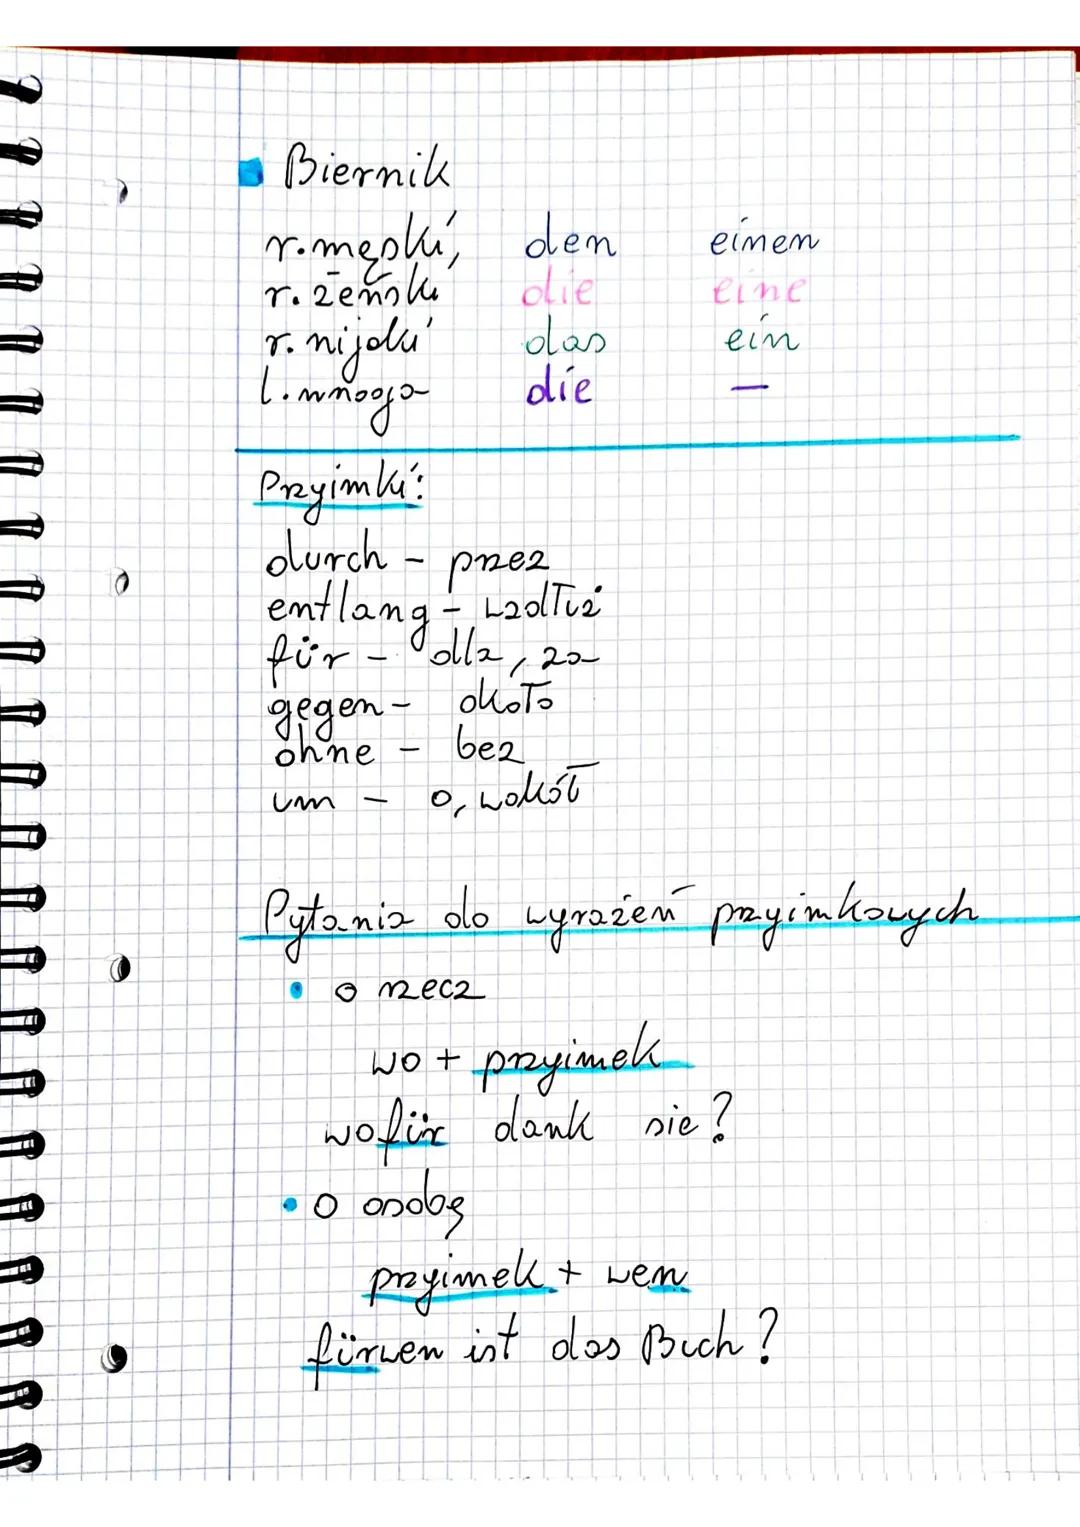 Biernik
r. męski, den einen
r. żeński die eine
r. nijaki das ein
l. mnoga die —
Przyimki:
durch - przez
entlang - wzdłuż
für - dla, za
gegen - około
ohne - bez
um - o, wokół
Pytania do wyrażeń przyimkowych
• o rzecz
wo + przyimek
wofür dank sie?
• o osobę
przyimek + wen
fürwen ist das Buch?